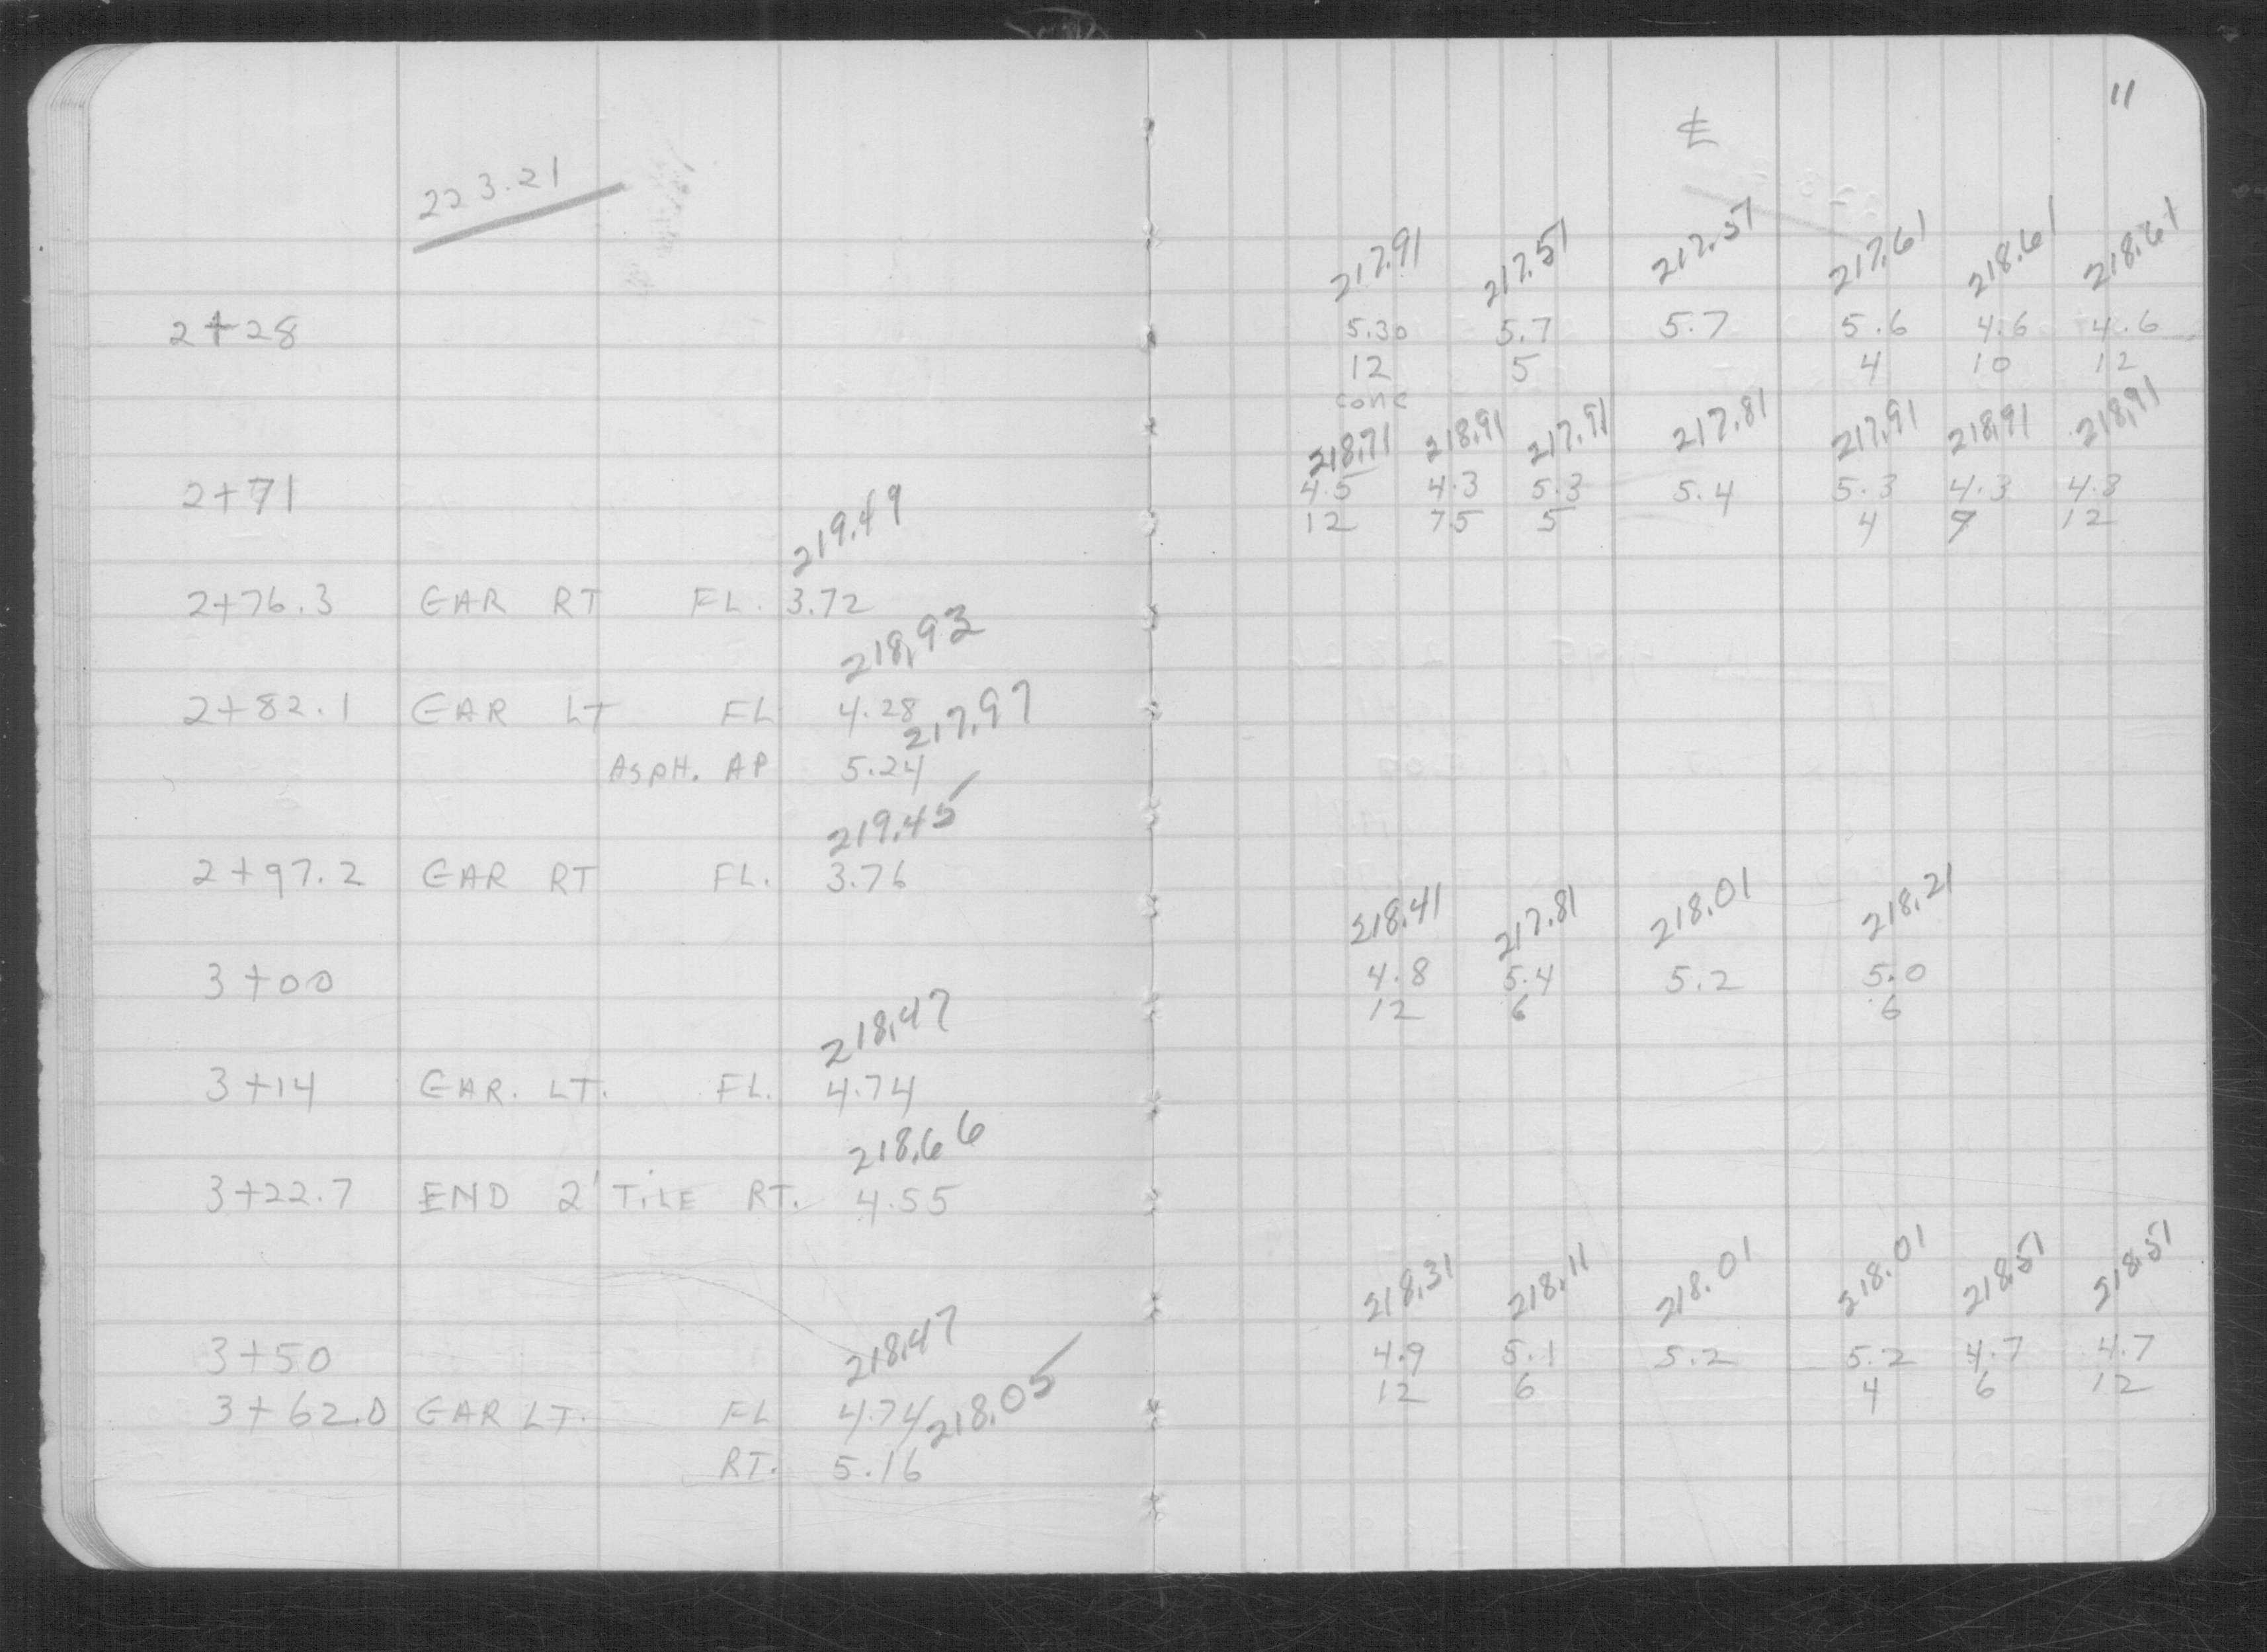 223.21
2+28
2+71
219.49
2+76.3 GAR RT FL. 3.72
218.93
2+82.1 GAR LT FL 4.28
217.97
ASPH. AP 5.24
219.45
2+97.2 GAR RT FL. 3.76
3+00
218.47
3+14 GAR. LT. FL. 4.74
218.66
3+22.7 END 2' TILE RT. 4.55
3+50
218.47
3+62.0 GAR LT. FL 4.74
218.05
RT. 5.16
11
℄
217.91 217.51 217.51 217.61 218.61 218.61
5.30 5.7 5.7 5.6 4.6 4.6
12 5 4 10 12
conc
218.71 218.91 217.91 217.81 217.91 218.91 218.91
4.5 4.3 5.3 5.4 5.3 4.3 4.3
12 7.5 5 4 9 12
218.41 217.81 218.01 218.21
4.8 5.4 5.2 5.0
12 6 6
218.31 218.11 218.01 218.01 218.51 218.51
4.9 5.1 5.2 5.2 4.7 4.7
12 6 4 6 12